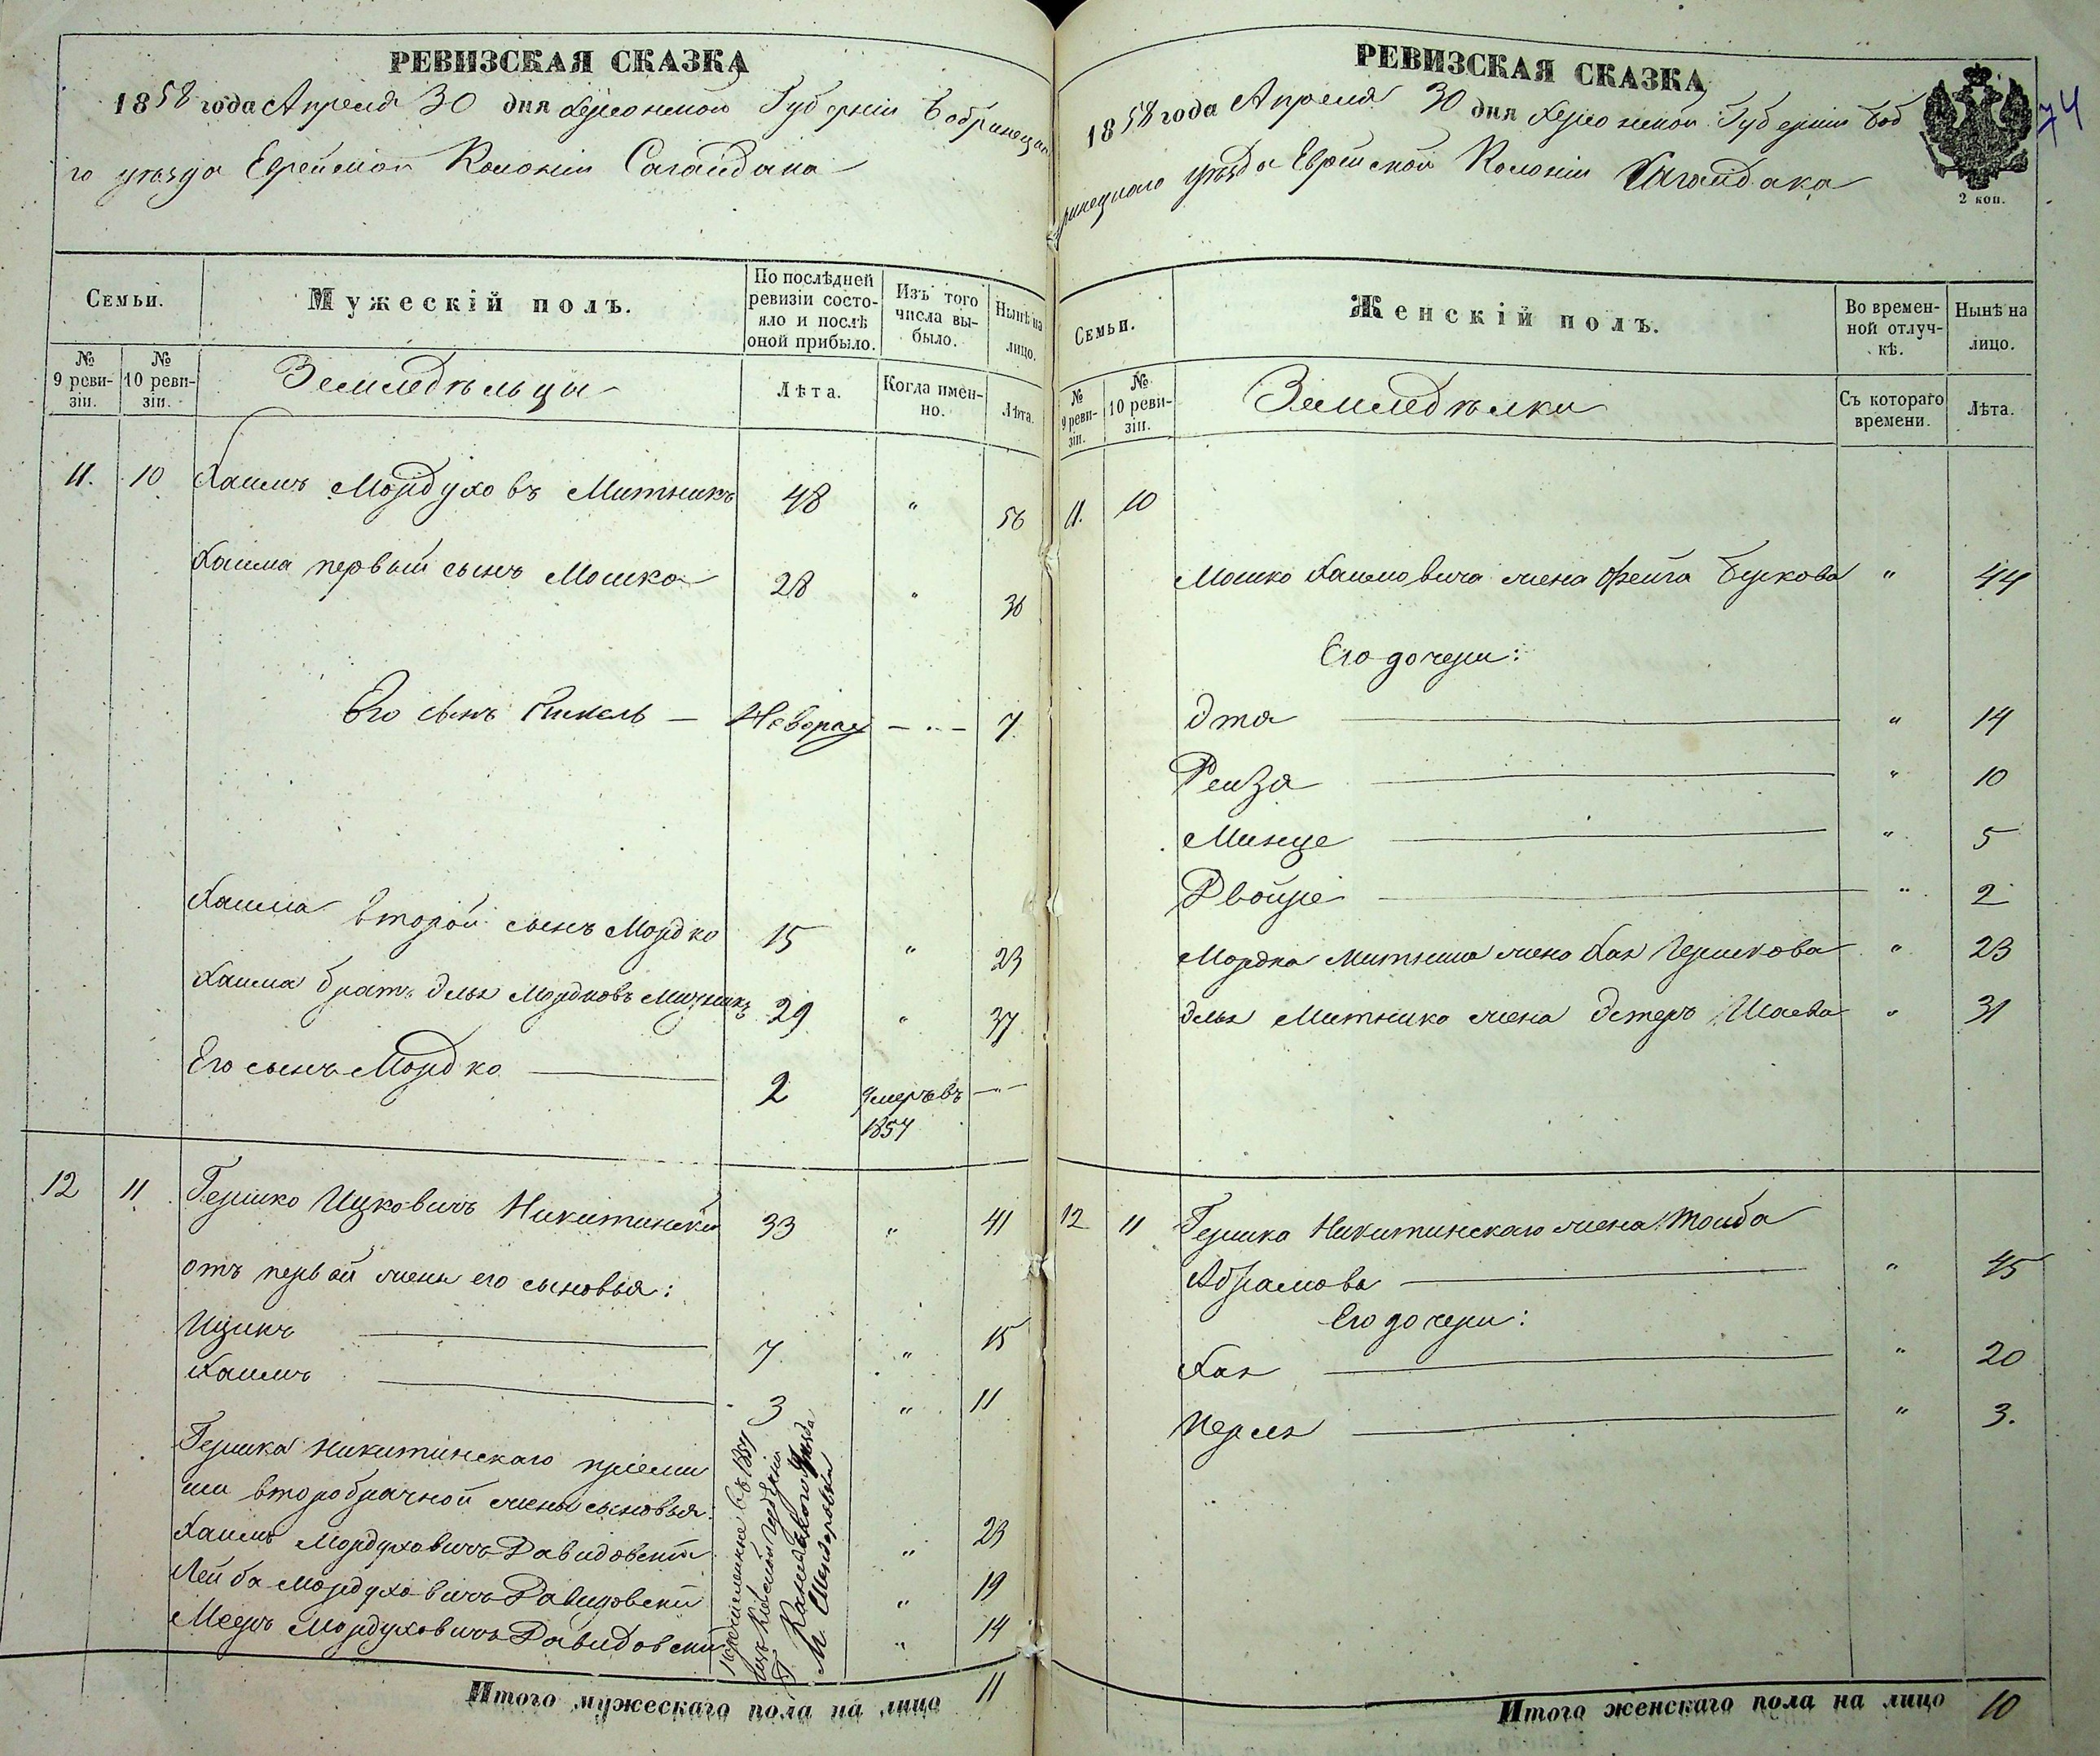 РЕВИЗСКАЯ СКАЗКА
1858 года Апреля 30 дня Херсонской Губерніи Бобринецка
го уезда Еврейской Колоніи Сагайдака
Семьи.
Мужескій полъ.
По послѣдней ревизіи состояло и послѣ оной прибыло.
Изъ того числа выбыло.
Нынѣ на лицо.
№ 9 ревизіи.
№ 10 ревизіи.
Земледѣльцы
Лѣта.
Когда именно.
Лѣта.
11. 10 Хаимъ Мордуховъ Митникъ 48 " 56
Хаима первый сынъ Мошко 28 " 36
Его сынъ — Новорож — " — 7
Хаима второй сынъ Мордко 15 " 23
Хаима братъ Элья Мордковъ Митникъ 29 " 37
Его сынъ Мордко 2 умеръ въ 1857 — " —
12 11 Гершко Ицковичъ Никитинскій 33 " 41
отъ первой жены его сыновья:
Ицикъ 7 " 15
Хаимъ 3 " 11
Гершка Никитинскаго пріемыши второбрачной жены сыновья:
Хаимъ Мордуховичъ Давидовскій " 23
Лейба Мордуховичъ Давидовскій " 19
Мееръ Мордуховичъ Давидовскій " 14
Перечисленные въ 1857
изъ Кіевской губерніи
Каневскаго Уезда
М.
Итого мужескаго пола на лицо 11
РЕВИЗСКАЯ СКАЗКА
74
1858 года Апреля 30 дня Херсонской Губерніи Боб
ринецкаго уѣзда Еврейской Колоніи Сагайдака
2 коп.
Семьи.
Женскій полъ.
Во временной отлучкѣ.
Нынѣ на лицо.
№ 9 ревизіи.
№ 10 ревизіи.
Земледѣлки
Съ котораго времени.
Лѣта.
11. 10
Мошко Хаимовича жена Фейга Беркова " 44
Его дочери:
Эта " 14
Рейза " 10
Минце " 5
Двойре " 2
Мордка Митника жена Хая Гершкова " 23
Элья Митника жена Эстеръ Шаева " 31
12 11 Гершка Никитинскаго жена Тойба
Абрамова " 45
Его дочери:
Хая " 20
Перля " 3.
Итого женскаго пола на лицо 10